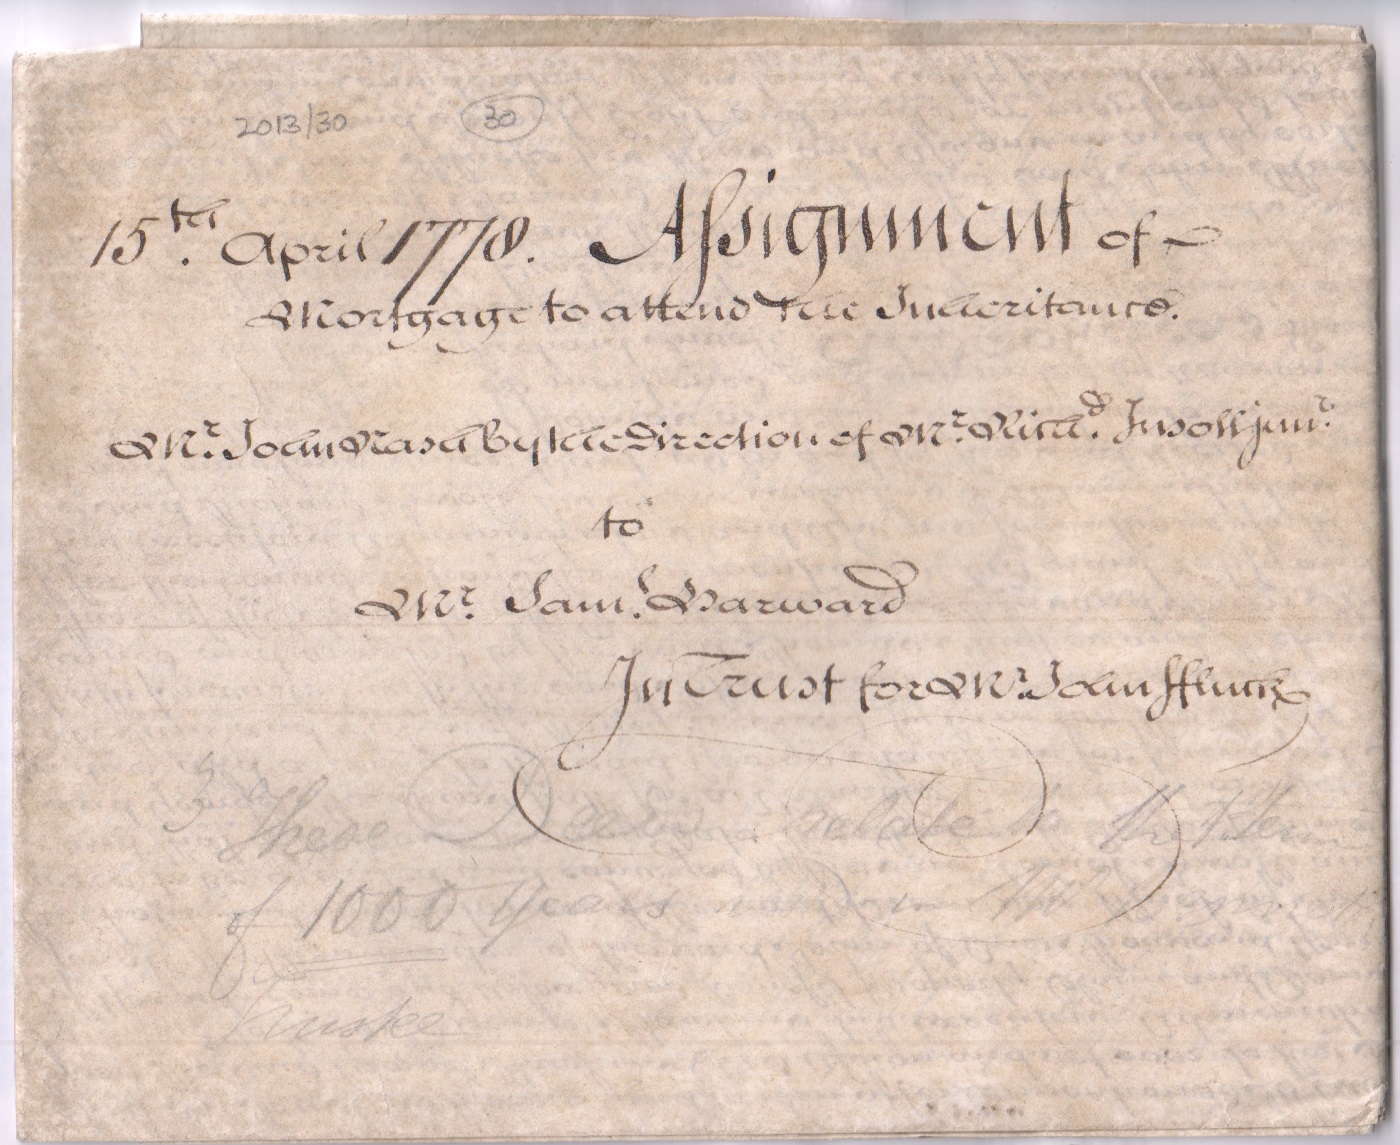 2013/30 30
15th. April 1778. Assignment of
Mortgage to attend the Inheritance.
Mr. John Nash by the Direction of Mr. Richd. Insoll junr.
to
Mr. Saml. Barward
In Trust for Mr. John ffluck
These Deeds relate to the Term
of 1000 years in
Trustee